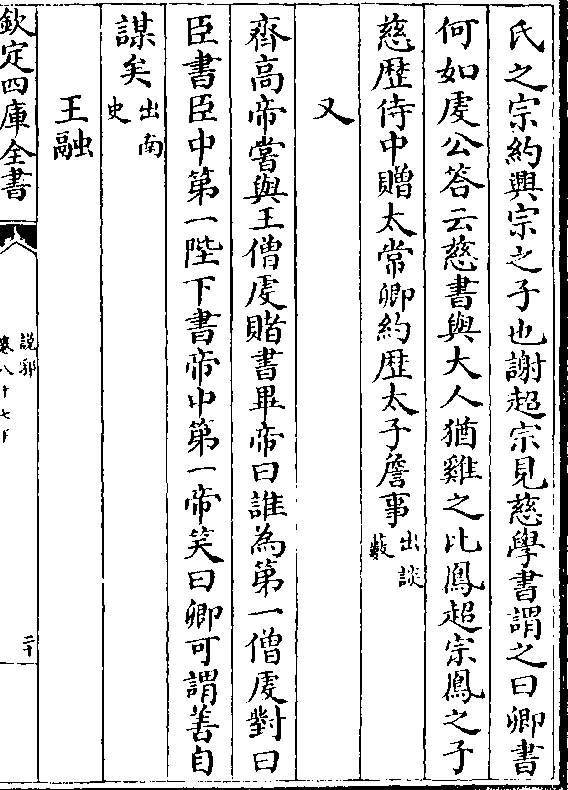 氏之宗約興宗之子也謝超宗見慈學書謂之曰卿書
何如虔公答云慈書與大人猶雞之比鳳超宗鳳之子
慈歴侍中贈太常卿約歴太子詹事出談藪
又
齊高帝嘗與王僧虔賭書畢帝曰誰為第一僧虔對曰
臣書臣中第一陛下書帝中第一帝笑曰卿可謂善自
謀矣出南史
王融
欽定四庫全書
說郛
卷八十七下
二十